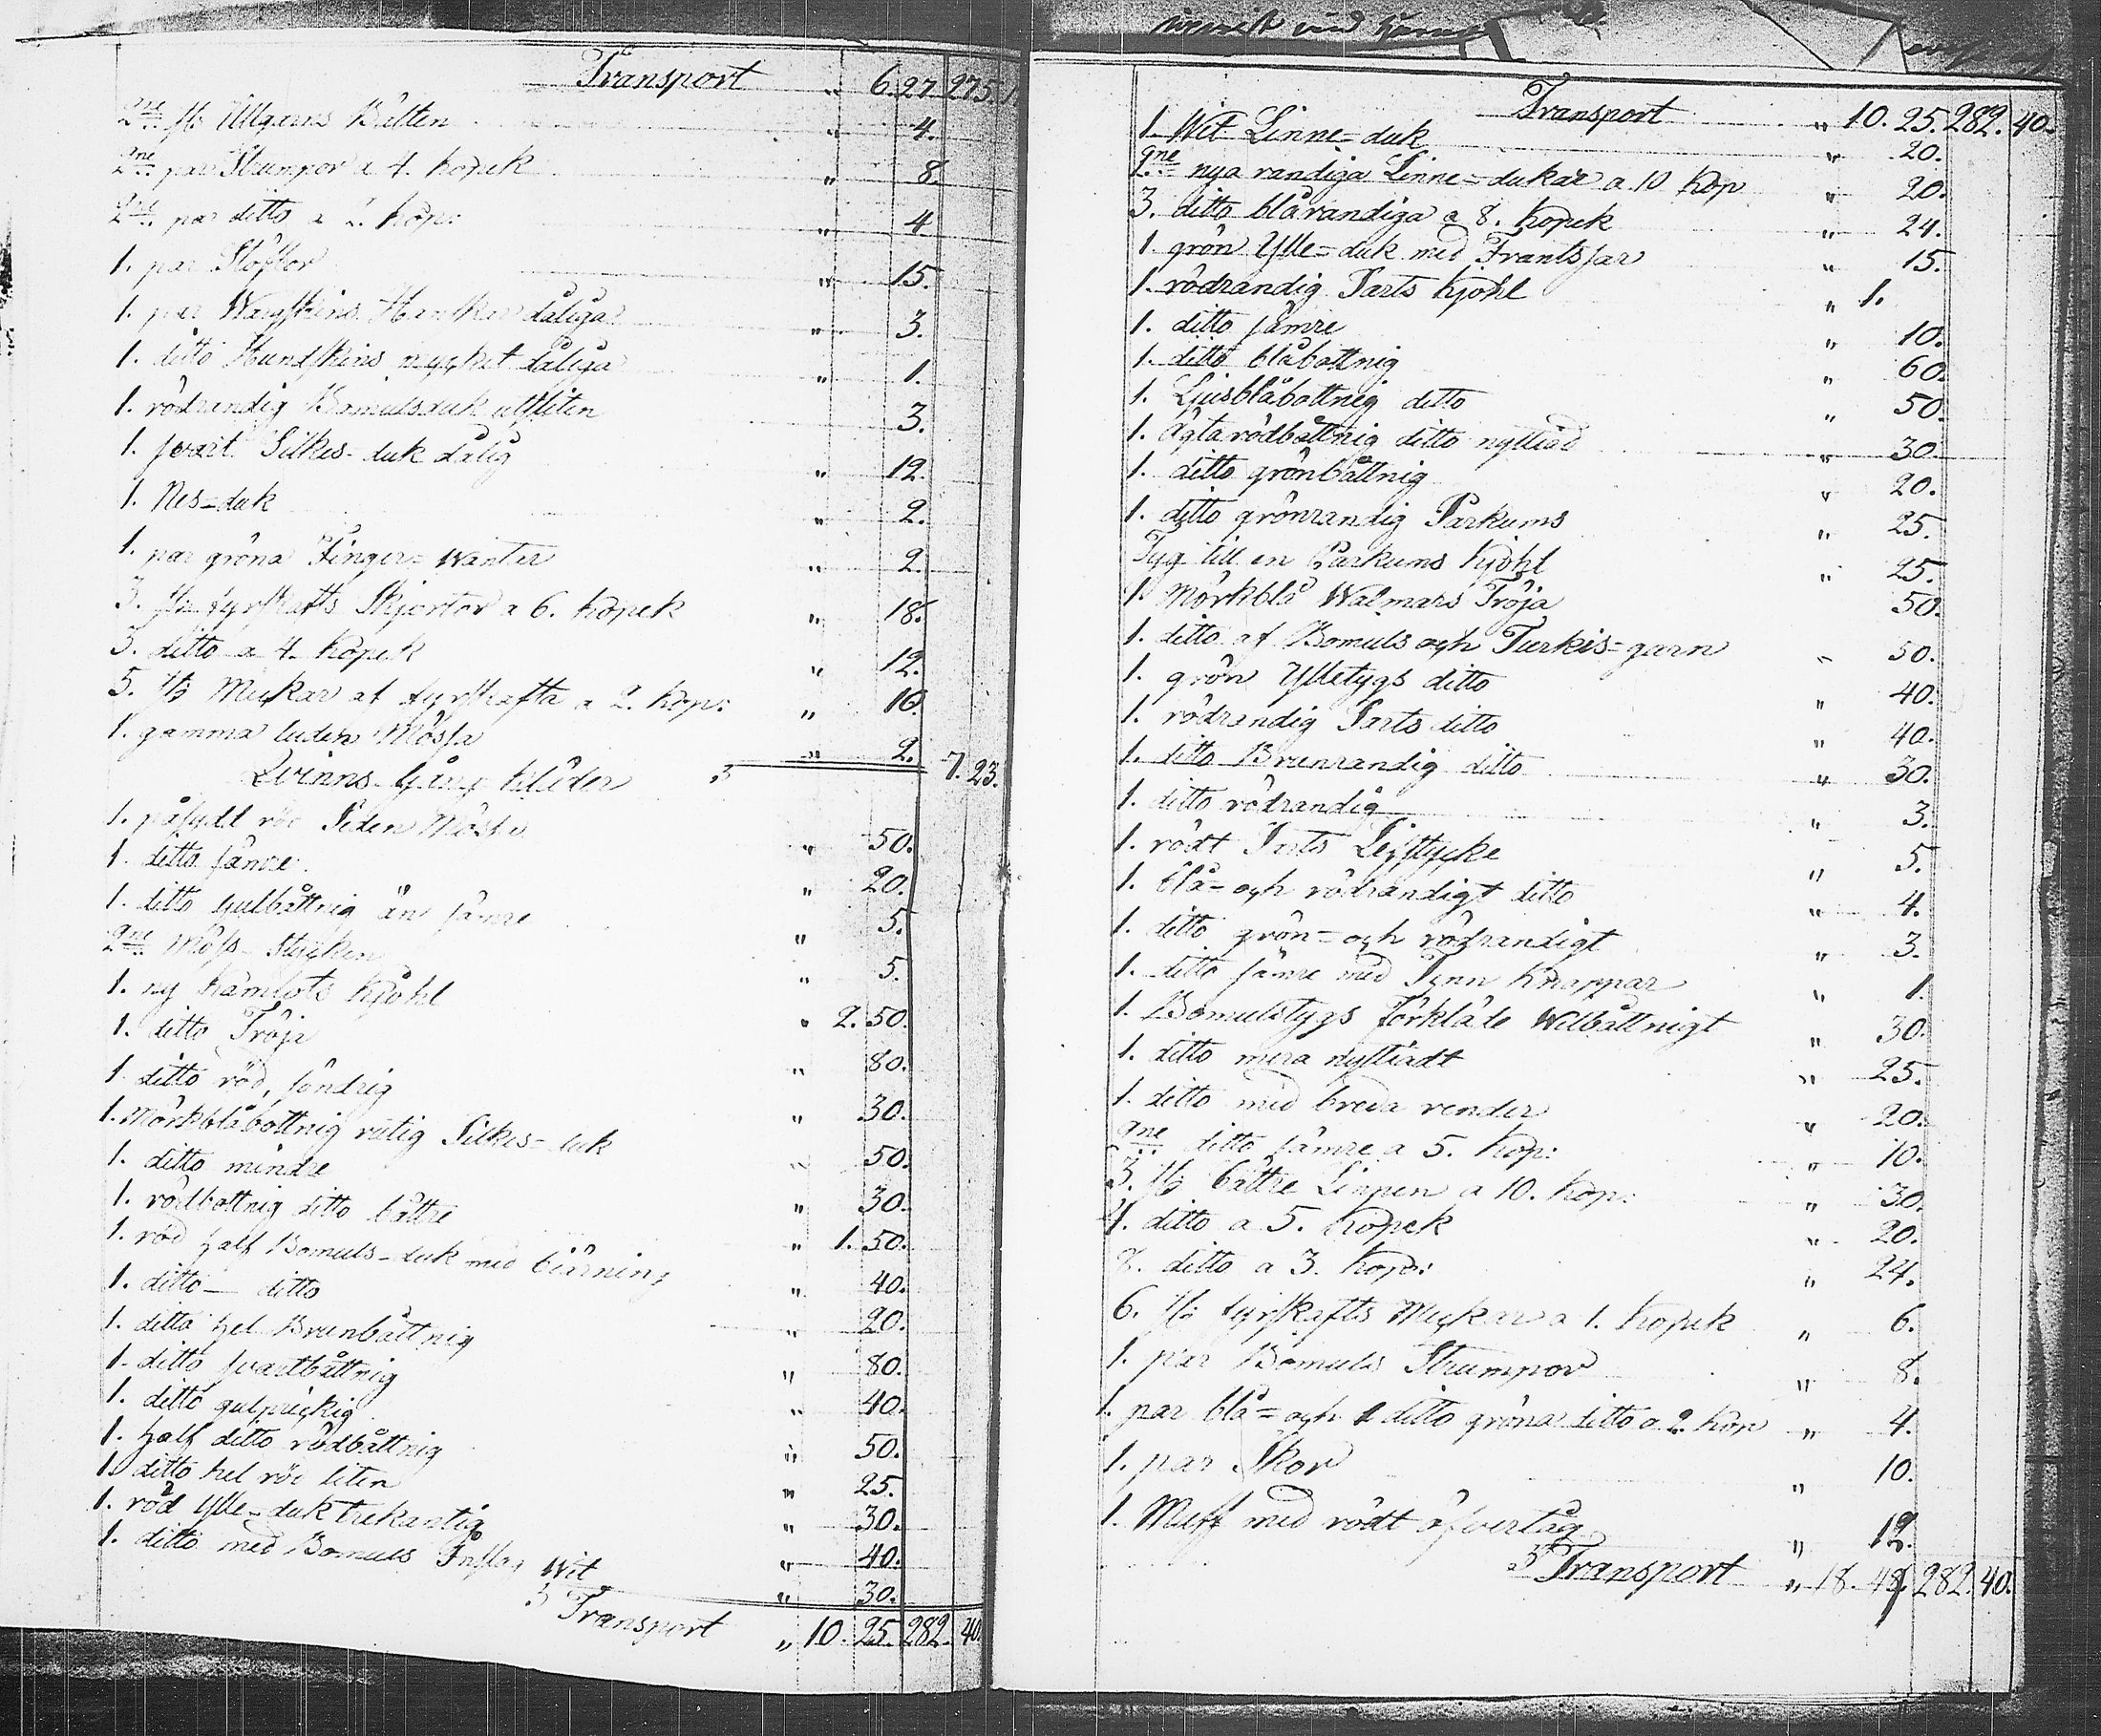 Transport " 6. 27. 275. 1
2ne st: Ullgarns Bälten " 4.
2ne par Strumpor a 4. kopek " 8.
2ne par ditto a 2. kop: " 4
1. par Stöflor " 15.
1. par Wargskins Hanskar dåliga " 3.
1. ditto Hundskins mycket dåliga " 1.
1. rödrandig Bomulsduk utsliten " 3.
1. svart Silkes-duk dålig " 12.
1. Nes-duk " 2.
1. par gröna Finger-Wantar " 2.
3. st: fyrskafts Skjortor a 6. kopek " 18.
3. ditto a 4. kopek " 12.
5. st: Myckar af fyrskafta a 2. kop: " 10.
1. gamma luden Mössa " 2. 7. 23.
Qvinns Gång kläder
1. påsydd röd Siden Mössa " 50.
1. ditto sämre " 20.
1. ditto gulbåttnig än sämre " 5.
2ne Möss-stycken " 5.
1. ny kamlots kjohl " 2. 50.
1. ditto Tröja " 80.
1. ditto röd, söndrig " 30.
1. Mörkblåbottnig rutig Silkes-duk " 50.
1. ditto mindre " 30.
1. rödbottnig ditto bättre " 1. 50.
1. röd half Bomuls-duk med bårning " 40.
1. ditto — ditto " 20.
1. ditto hel Brunbåttnig " 80.
1. ditto svartbåttnig " 40.
1. ditto gulprickig " 50.
1. half ditto rödbåttnig " 25.
1. ditto hel röd liten " 30.
1. röd Ylle-duk trekantig " 40.
1. ditto med Bomuls Inslag Wit " 30.
Transport " 10. 25. 282. 40.
Transport " 10. 25. 282. 40.
1. Wit Linne-duk " 20.
2ne nya randiga Linne-dukar a 10 kop " 20.
3. ditto blårandiga a 8. kopek " 24.
1. grön Ylle-duk med Frantsjar " 15.
1. rödrandig Parts kjohl " 1.
1. ditto sämre " 10.
1. ditto blåbottnig " 60.
1. Ljusblåbottnig ditto " 50.
1. Ägta rödbåttnig ditto nyttiad " 30.
1. ditto grönbåttnig " 20.
1. ditto grönrandig Parkums " 25.
Tyg till en Parkums kjohl " 25.
1. Mörkblå Walmars Tröja 50.
1. ditto af Bomuls och Turkis-garn " 50.
1. grön Ylletygs ditto " 40.
1. rödrandig Parts ditto " 40.
1. ditto Brunrandig ditto " 30.
1. ditto rödrandig " 3.
1. rödt Parts Lifstycke " 5.
1. blå- och rödrandigt ditto " 4.
1. ditto grön- och rödrandigt " 3.
1. ditto sämre med Tenn knappar " 1.
1. Bomulstygs Förkläde Witbåttnigt " 30.
1. ditto mera nyttiadt " 25.
1. ditto med breda render " 20.
2ne ditto sämre a 5. kop: " 10.
3. st: bättre Linnen a 10. kop: " 30.
4. ditto a 5. kopek " 20.
8. ditto a 3. kop: " 24.
6. st: fyrskafts Myckar a 1. kopek " 6.
1. par Bomuls Strumpor " 8.
1. par blå- och 1 ditto gröna ditto a 2. kop " 4.
1. par Skor " 10.
1. Muff med rödt öfvertåg " 12.
Transport " 18. 49. 282. 40.